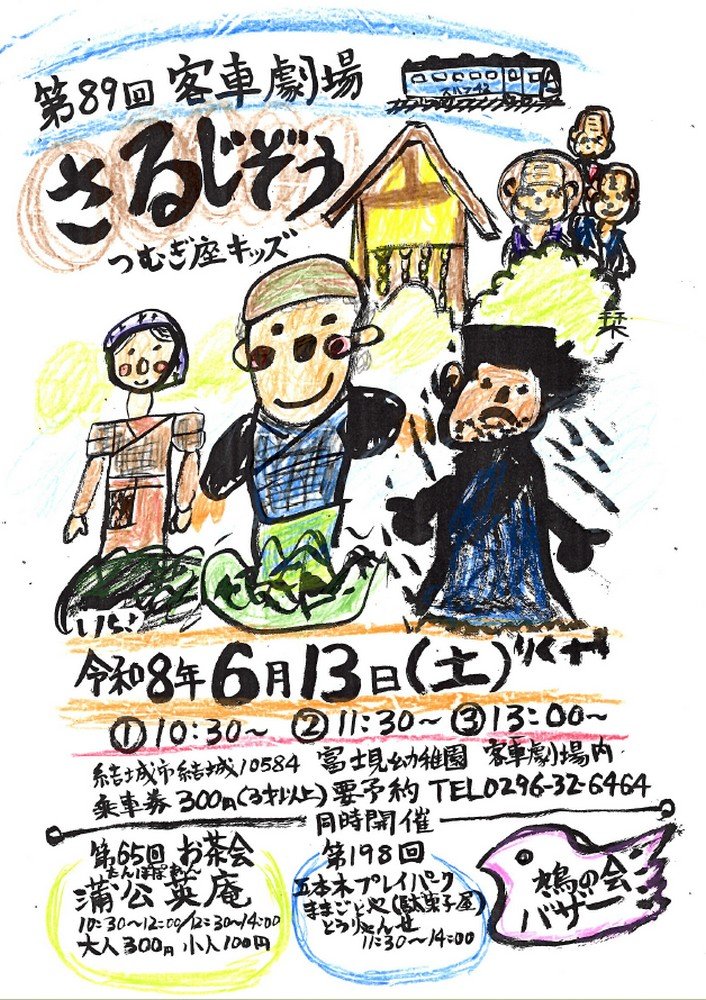 第89回 客車劇場
スハフ42
さるじぞう
つむぎ座キッズ
栞
いちご
りく
令和8年6月13日(土)
①10:30~ ②11:30~ ③13:00~
結城市結城10584 富士見幼稚園 客車劇場内
乗車券300円(3才以上)要予約 TEL0296-32-6464
同時開催
第65回 お茶会
たんぽぽあん
蒲公英庵
10:30~12:00/12:30~14:00
大人300円 小人100円
第198回
五本木プレイパーク
ままごとや(駄菓子屋)
とうりゃんせ
11:30~14:00
鳩の会
バザー